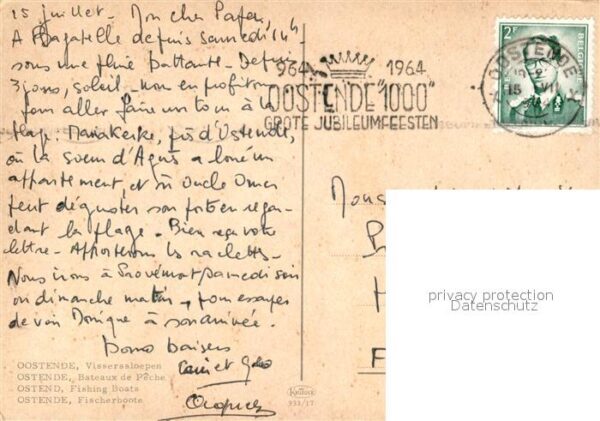 15 juillet - Mon cher Papa,
A Bagatelle depuis samedi 14h
sous une pluie battante. Depuis
3 jours, soleil - on en profite
pour aller faire un tour à la
plage. Mariakerke, près d'Ostende,
où la soeur d'Agnès a loué un
appartement, et où Oncle Omer
peut déguster son porto en regar-
dant la plage. Bien reçu votre
lettre - Apporterons les raclettes.
Nous irons à samedi soir
ou dimanche matin, pour essayer
de voir Monique à son arrivée.
Bons baisers
et
964 1964
OOSTENDE "1000"
GROTE JUBILEUMFEESTEN
OOSTENDE
15 VII
2F
BELGIE
Mons
P
M
F
privacy protection
Datenschutz
OOSTENDE, Visserssloepen
OSTENDE, Bateaux de Pêche
OSTEND, Fishing Boats
OSTENDE, Fischerboote
Krüger
933/17